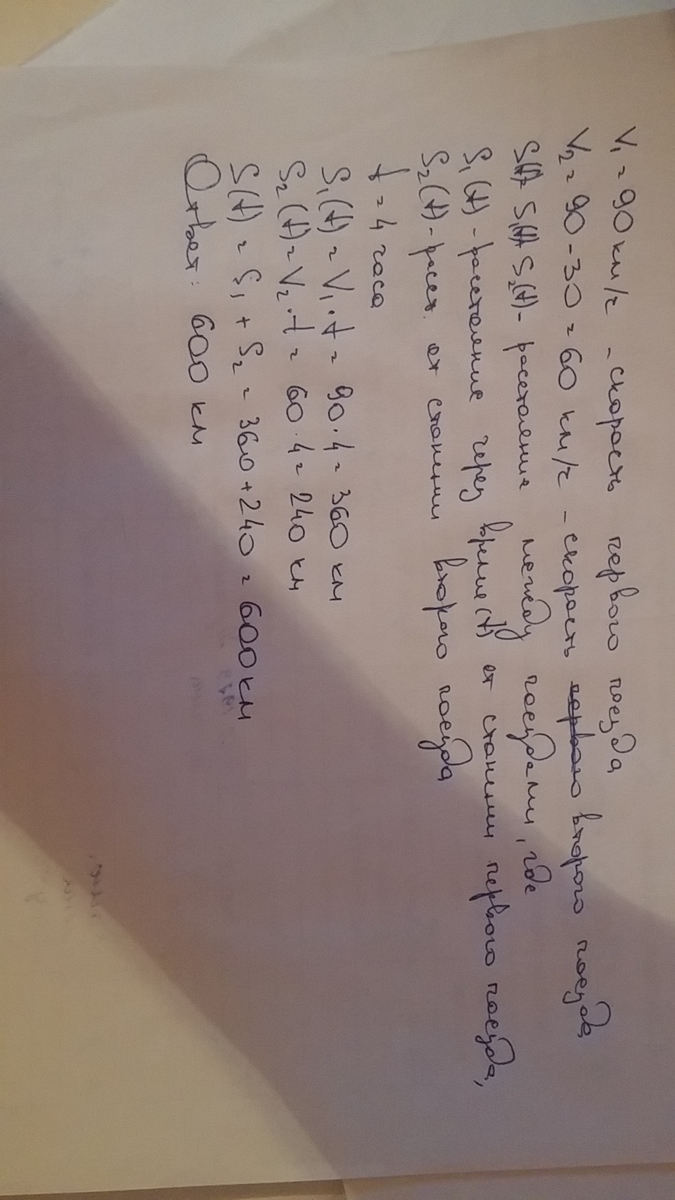 V₁ = 90 км/ч – скорость первого поезда
V₂ = 90 - 30 = 60 км/ч – скорость первого второго поезда
S(t) S₁(t) S₂(t) – расстояние между поездами, где
S₁(t) – расстояние через время (t) от станции первого поезда,
S₂(t) – расст. от станции второго поезда
t = 4 часа
S₁(t) = V₁·t = 90·4 = 360 км
S₂(t) = V₂·t = 60·4 = 240 км
S(t) = S₁ + S₂ = 360 + 240 = 600 км
Ответ: 600 км